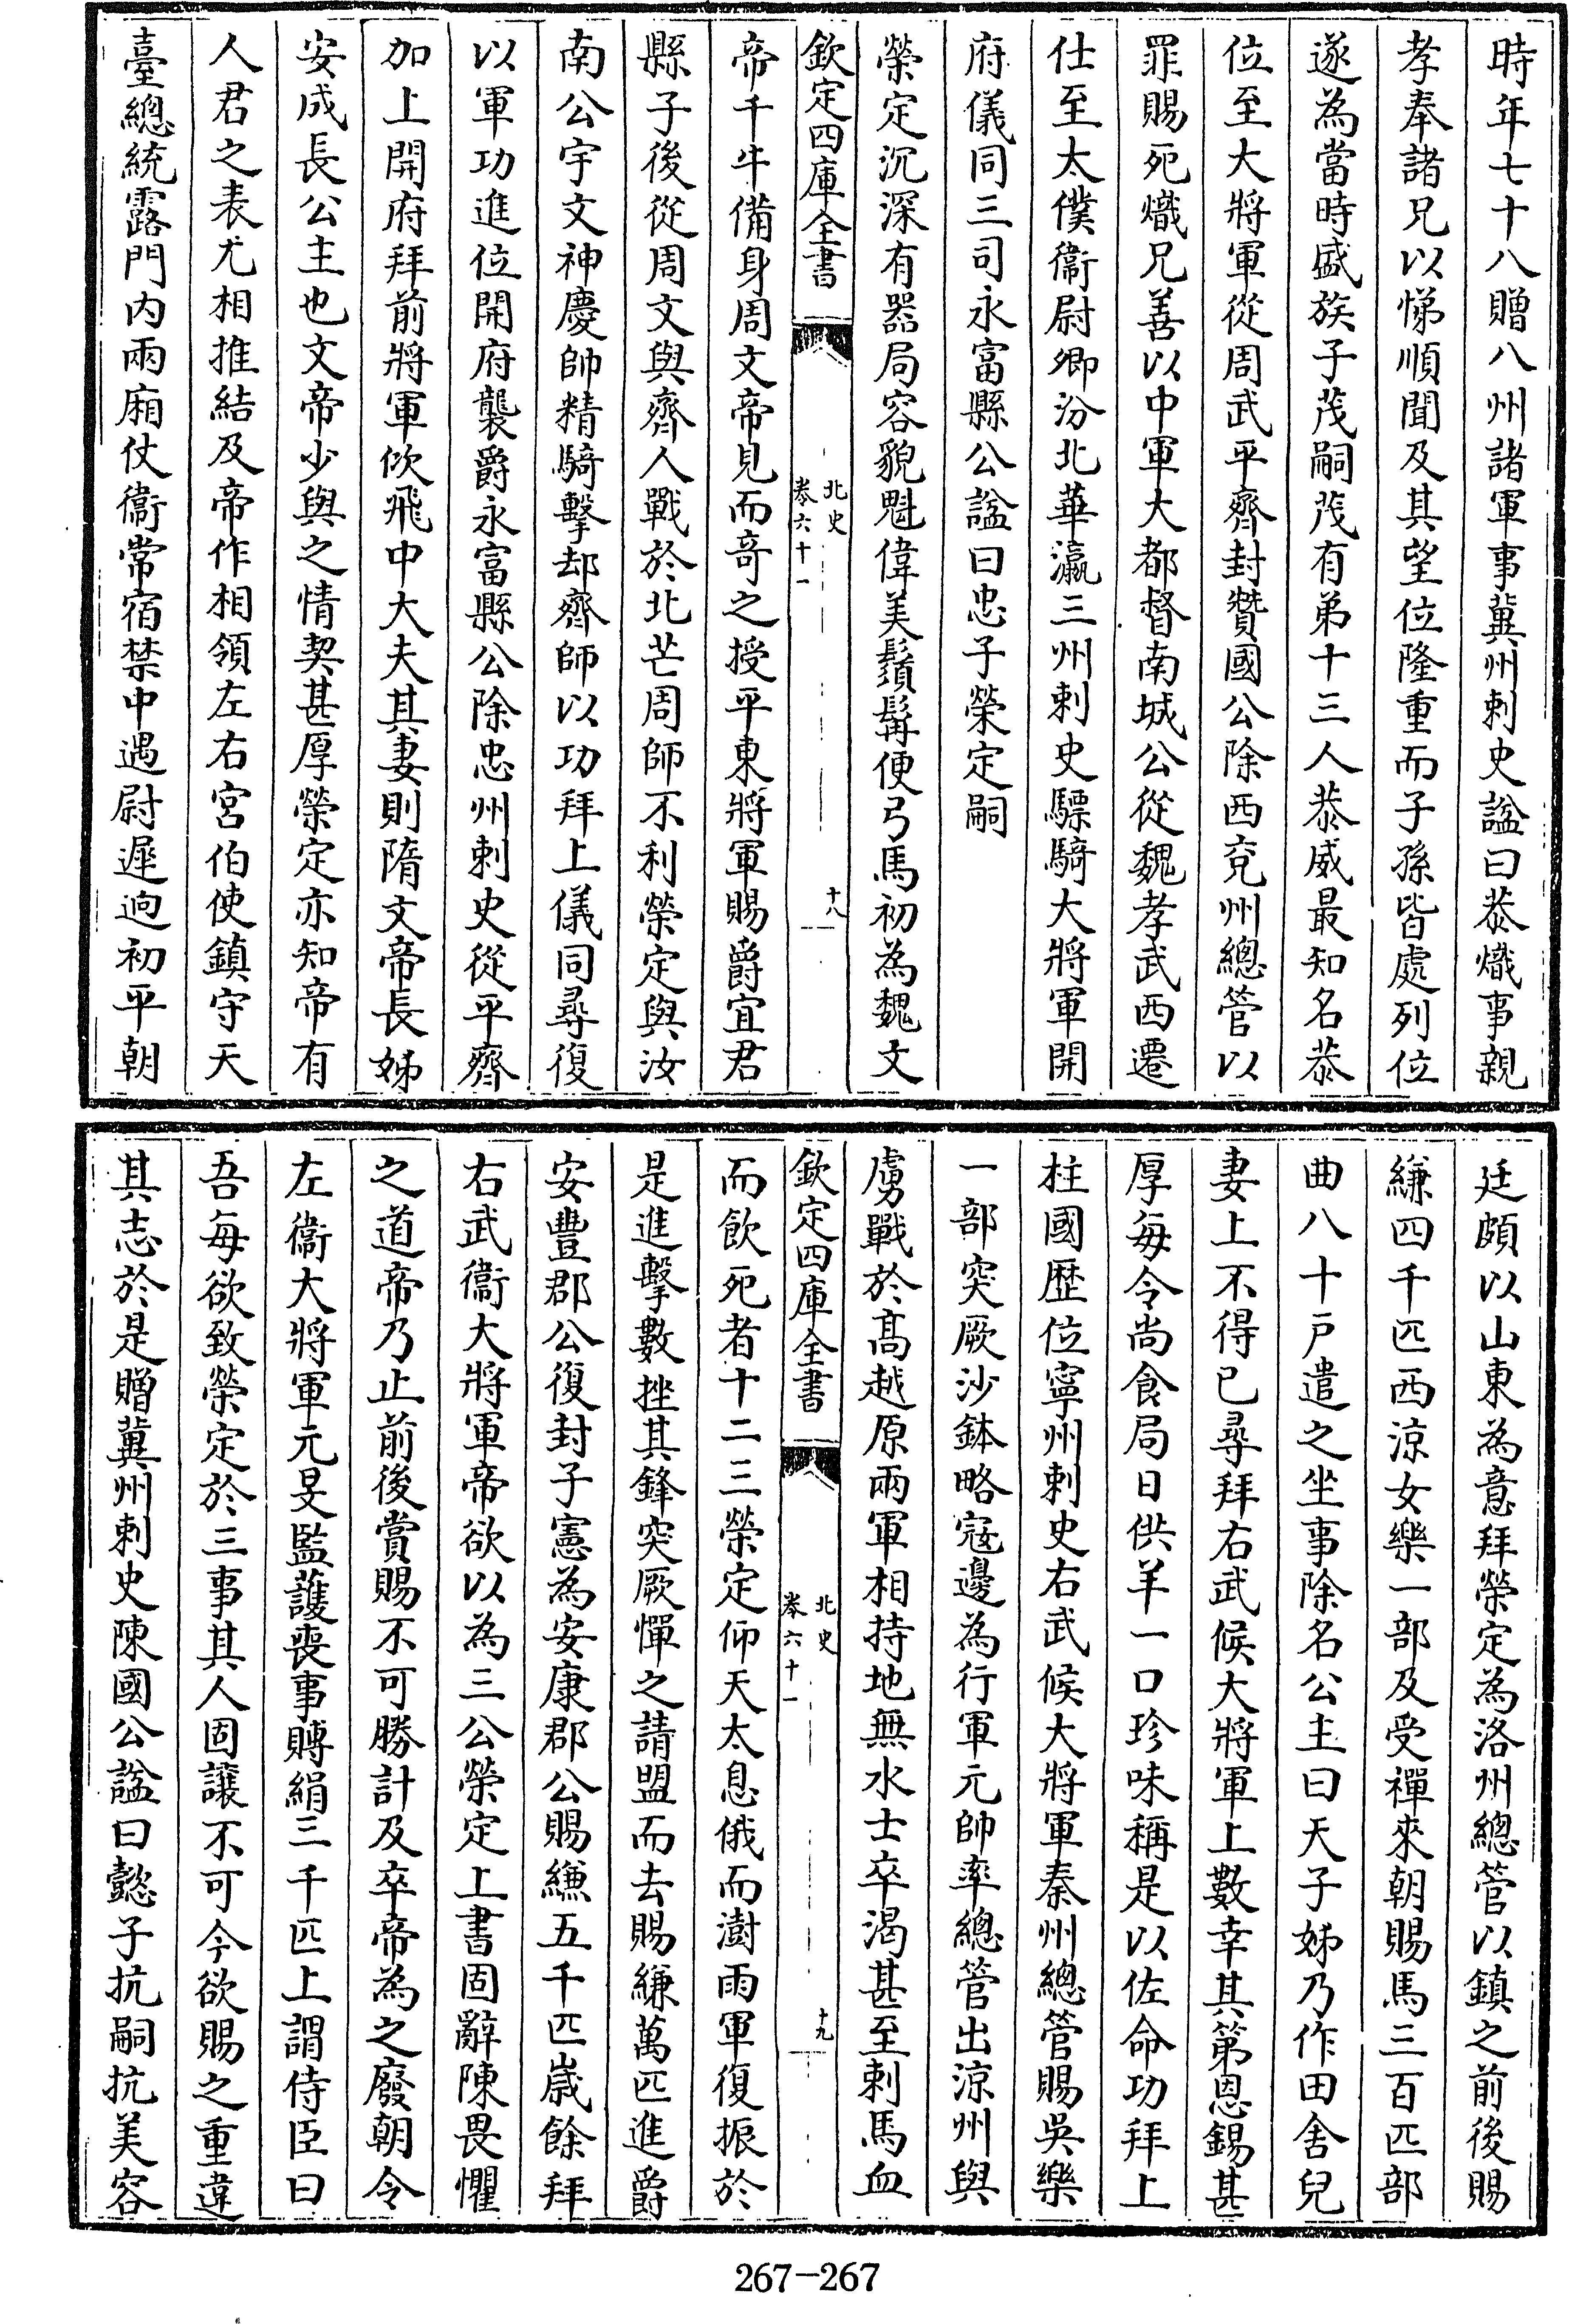 時年七十八贈八州諸軍事冀州刺史諡曰恭熾事親
孝奉諸兄以悌順聞及其望位隆重而子孫皆處列位
遂為當時盛族子茂嗣茂有弟十三人恭威最知名恭
位至大將軍從周武平齊封贊國公除西兖州總管以
罪賜死熾兄善以中軍大都督南城公從魏孝武西遷
仕至太僕衞尉卿汾北華瀛三州刺史驃騎大將軍開
府儀同三司永富縣公諡曰忠子榮定嗣
榮定沉深有器局容貌魁偉美鬚髯便弓馬初為魏文
欽定四庫全書
北史
卷六十一
十八
帝千牛備身周文帝見而竒之授平東將軍賜爵宜君
縣子後從周文與齊人戰於北芒周師不利榮定與汝
南公宇文神慶帥精騎擊却齊師以功拜上儀同尋復
以軍功進位開府襲爵永富縣公除忠州刺史從平齊
加上開府拜前將軍佽飛中大夫其妻則隋文帝長姊
安成長公主也文帝少與之情契甚厚榮定亦知帝有
人君之表尤相推結及帝作相領左右宮伯使鎮守天
臺總統露門内兩廂仗衞常宿禁中遇尉遲迥初平朝
廷頗以山東為意拜榮定為洛州總管以鎮之前後賜
縑四千匹西涼女樂一部及受禪來朝賜馬三百匹部
曲八十戸遣之坐事除名公主曰天子姊乃作田舍兒
妻上不得已尋拜右武候大將軍上數幸其第恩錫甚
厚每令尚食局日供羊一口珍味稱是以佐命功拜上
柱國歴位寧州刺史右武候大將軍秦州總管賜吳樂
一部突厥沙鉢略寇邊為行軍元帥率總管出涼州與
虜戰於髙越原兩軍相持地無水士卒渴甚至刺馬血
欽定四庫全書
北史
卷六十一
十九
而飲死者十二三榮定仰天太息俄而澍雨軍復振於
是進擊數挫其鋒突厥憚之請盟而去賜縑萬匹進爵
安豐郡公復封子憲為安康郡公賜縑五千匹嵗餘拜
右武衞大將軍帝欲以為三公榮定上書固辭陳畏懼
之道帝乃止前後賞賜不可勝計及卒帝為之廢朝令
左衞大將軍元旻監䕶喪事賻絹三千匹上謂侍臣曰
吾每欲致榮定於三事其人固讓不可今欲賜之重違
其志於是贈冀州刺史陳國公諡曰懿子抗嗣抗美容
267-267